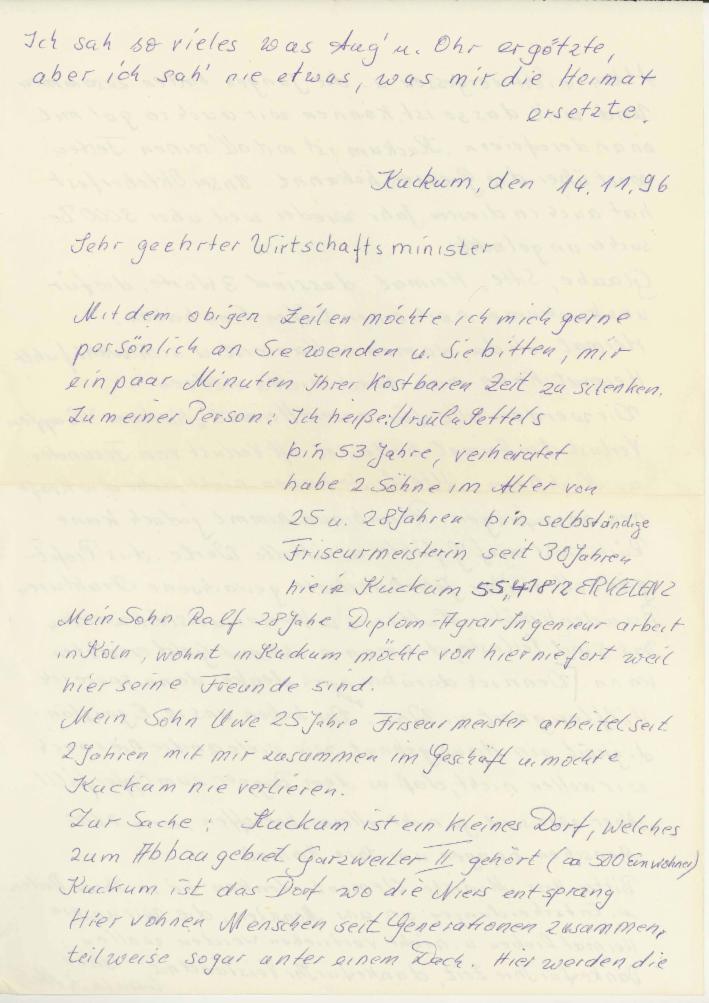 Ich sah so vieles was Aug' u. Ohr ergötzte,
aber ich sah' nie etwas, was mir die Heimat
ersetzte.
Kuckum, den 14.11.96
Sehr geehrter Wirtschaftsminister
Mit dem obigen Zeilen möchte ich mich gerne
persönlich an Sie wenden u. Sie bitten, mir
ein paar Minuten Ihrer kostbaren Zeit zu schenken.
Zu meiner Person: Ich heiße: Ursula Pettels
bin 53 Jahre, verheiratet
habe 2 Söhne im Alter von
25 u. 28 Jahren bin selbständige
Friseurmeisterin seit 30 Jahren
hier in Kuckum 55, 41812 ERKELENZ
Mein Sohn Ralf 28 Jahe Diplom-Agrar Ingenieur arbeit
in Köln, wohnt in Kuckum möchte von hier nie fort weil
hier seine Freunde sind.
Mein Sohn Uwe 25 Jahre Friseurmeister arbeitet seit
2 Jahren mit mir zusammen im Geschäft u. möchte
Kuckum nie verlieren.
Zur Sache: Kuckum ist ein kleines Dorf, welches
zum Abbaugebiet Garzweiler II gehört (ca 500 Einwohner)
Kuckum ist das Dorf wo die Niers entsprang
Hier wohnen Menschen seit Generationen zusammen,
teilweise sogar unter einem Dach. Hier werden die